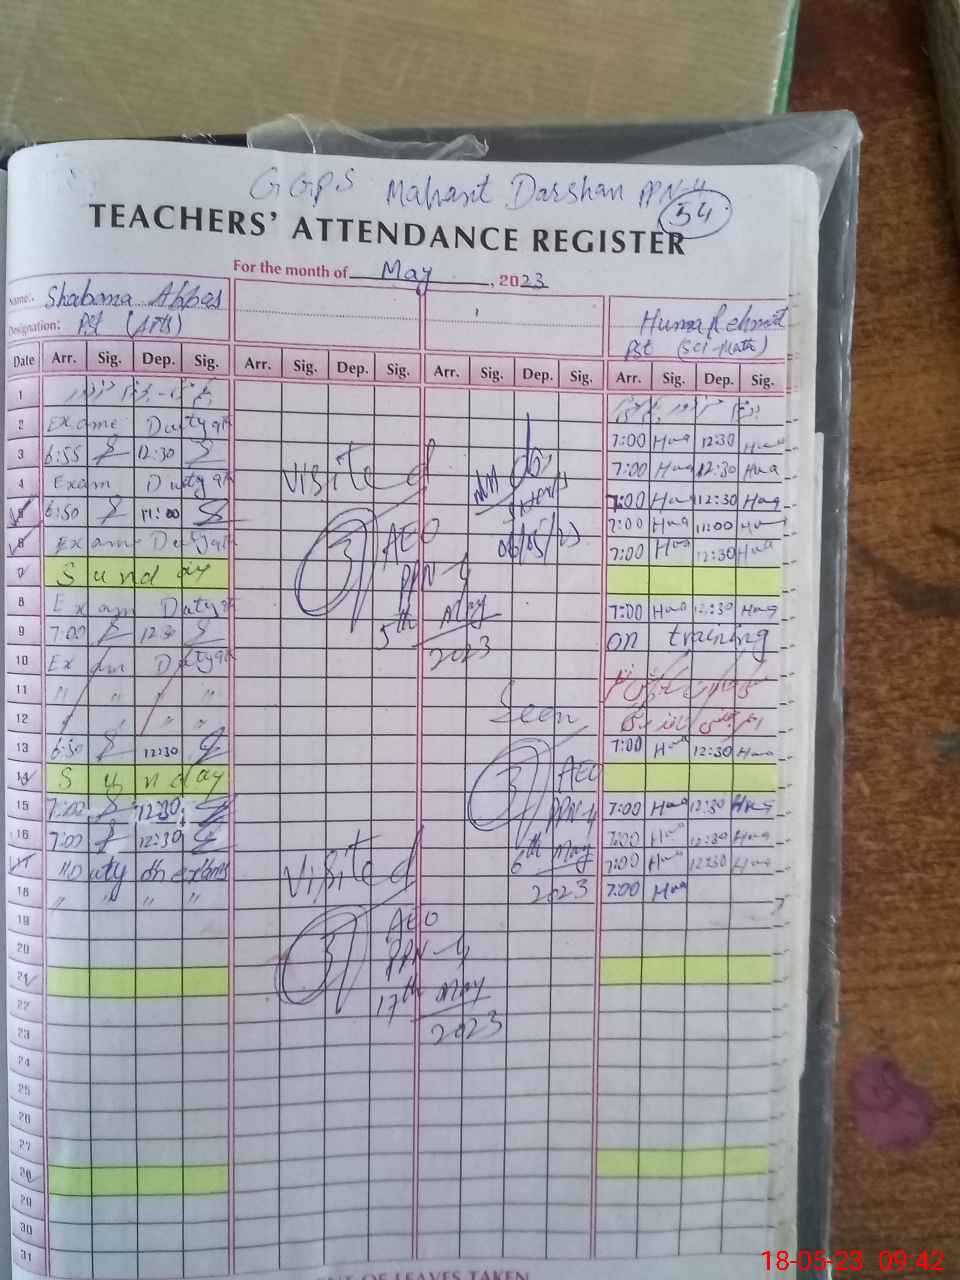 GGPS Mahant Darshan PPN-4
54
TEACHERS' ATTENDANCE REGISTER
For the month of May, 2023
Name:- Shabana Abbas
Huma Rehmat
Designation: Pst (Arts)
Pst (Sci-Math)
Date Arr. Sig. Dep. Sig. Arr. Sig. Dep. Sig. Arr. Sig. Dep. Sig. Arr. Sig. Dep. Sig.
1
2 Exame Duty 7:00 Hua 12:30 Hua
3 6:55 12:30 7:00 Hua 12:30 Hua
4 Exam Duty 7:00 Hua 12:30 Hua
5 6:50 11:00 7:00 Hua 11:00 Hua
6 Exam Duty 7:00 Hua 12:30 Hua
7 Sunday
8 Exam Duty 7:00 Hua 12:30 Hua
9 7:00 12:30 on training
10 Exam Duty
11 " " " "
12 " " " "
13 6:50 12:30 7:00 Hua 12:30 Hua
14 Sunday
15 7:00 12:30 7:00 Hua 12:30 Hua
16 7:00 12:30 7:00 Hua 12:30 Hua
17 7:00 Hua 12:30 Hua
18 " " " " 7:00 Hua
19
20
21
22
23
24
25
26
27
28
29
30
31
visited
AEO
PPN-4
5th May
2023
06/05/23
Seen
AEO
PPN-4
6th May
2023
Visited
AEO
PPN-4
17th May
2023
OF LEAVES TAKEN
18-05-23 09:42